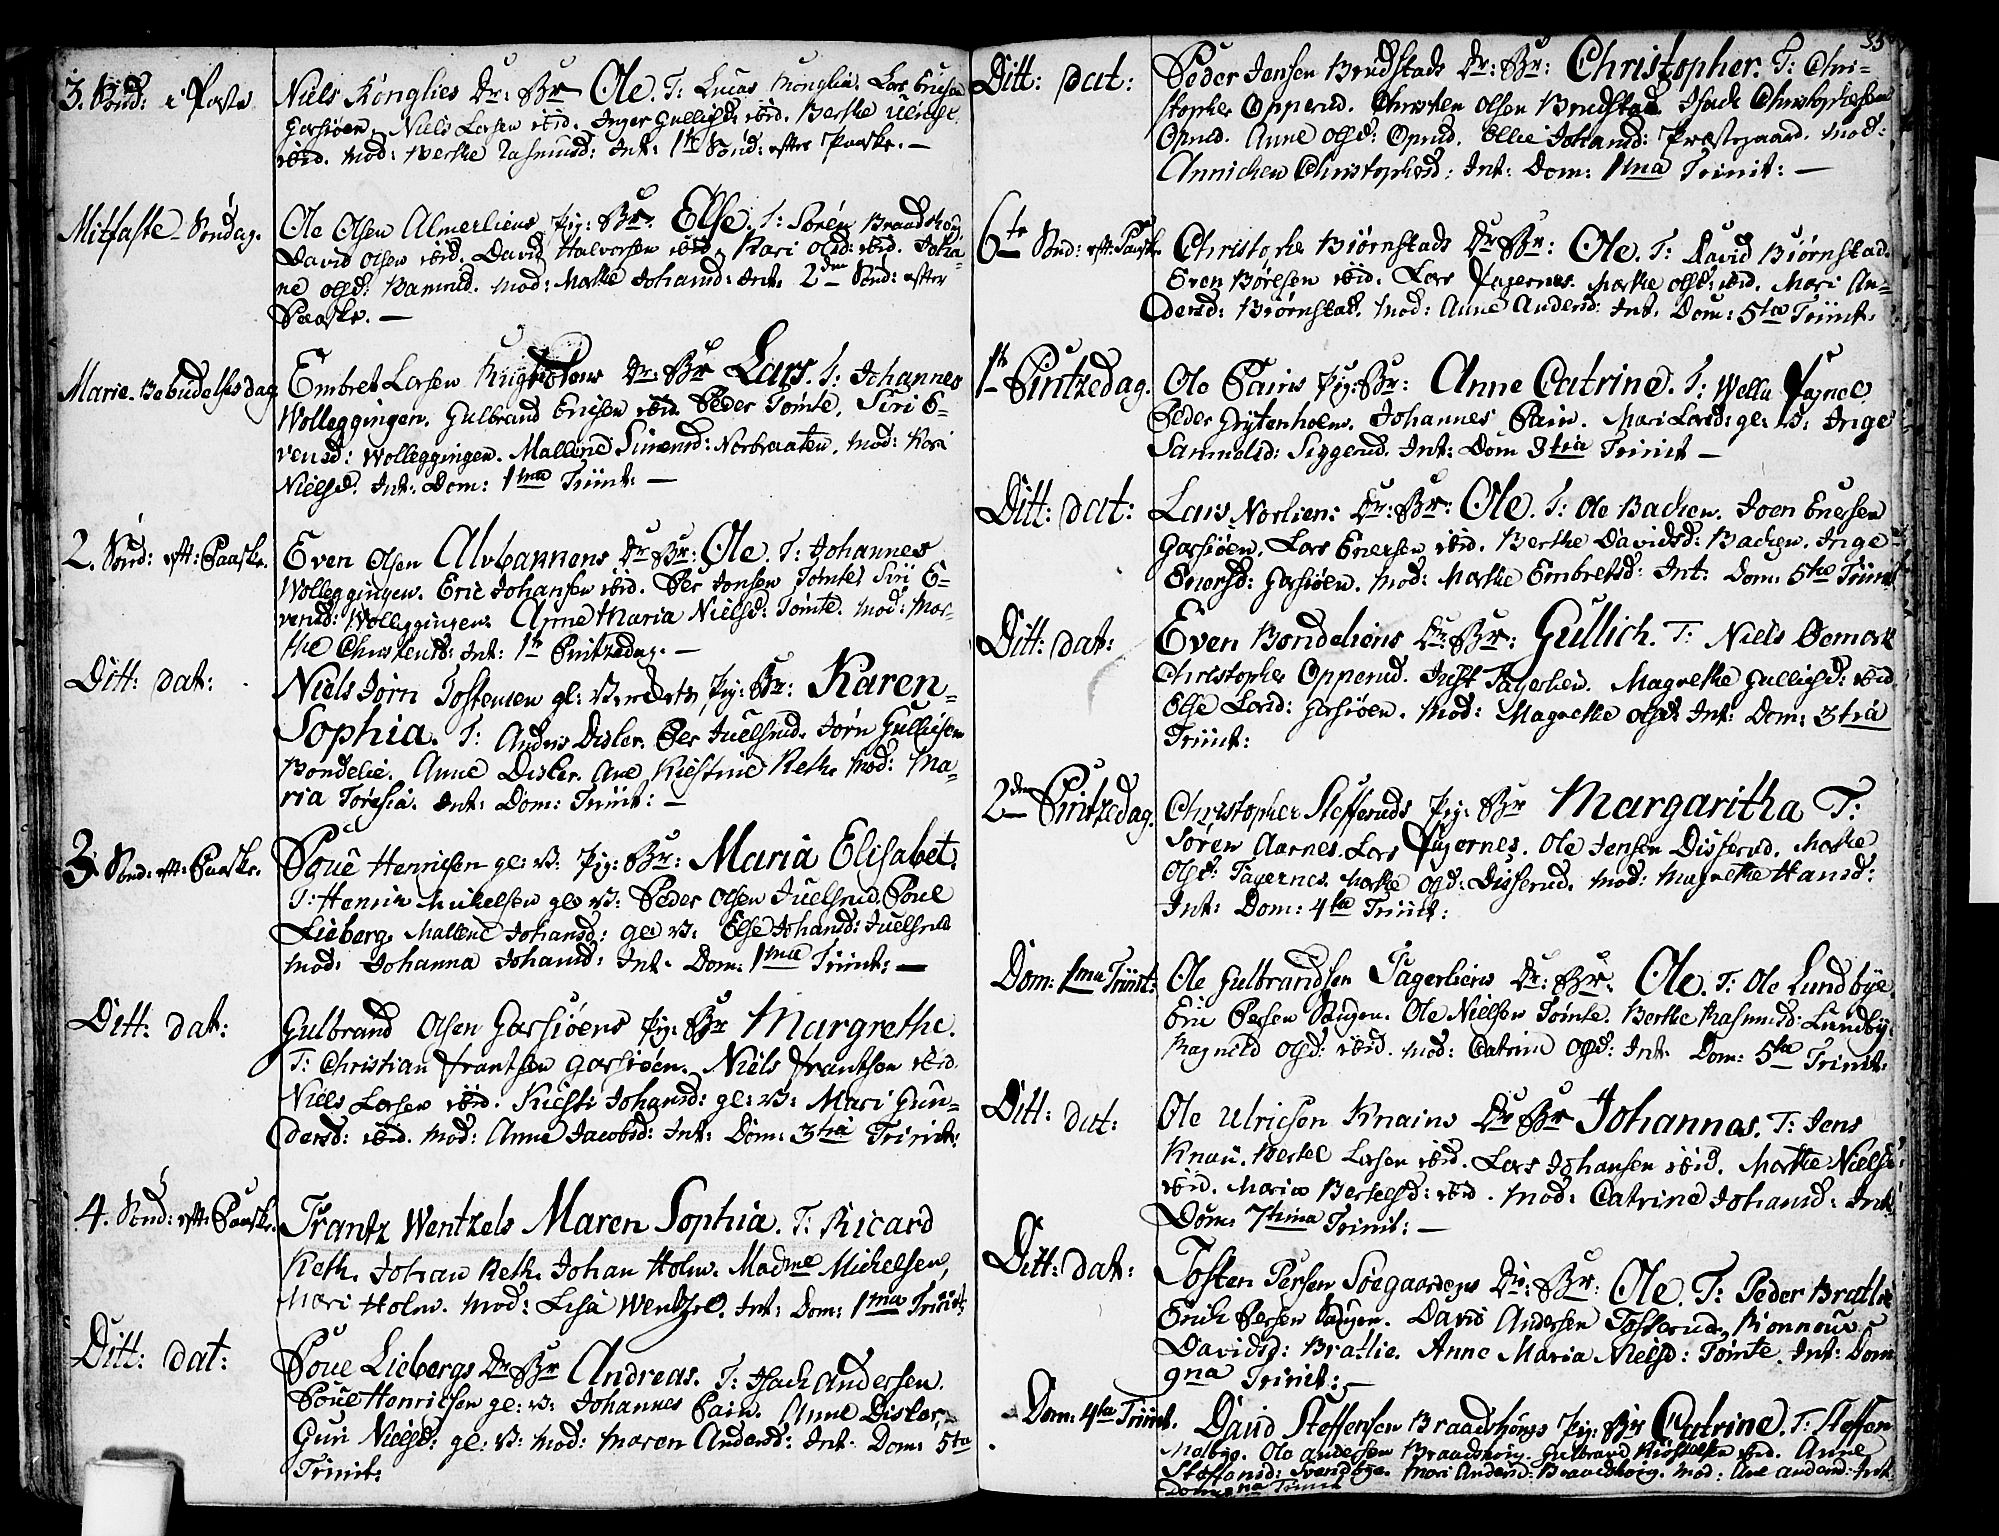 3. Sønd: i Faste Niels Kònglies Dr: Br Ole. T: Lucas Konglie. Lars Ericsen
Garsiøen. Niels Larsen ibid. Inger Gulligsd: ibid. Berthe
ibid. Mod: Berthe Rasmusd: Int: 1ste Sønd: efter Paaske. —
Mitfaste-Søndag. Ole Olsen Almerliens Pig: Br. Else. T: Søren Braadskog
David Olsen ibid. David Halvorsen ibid. Kari Olsd: ibid. Joha-
ne Olsd: Bamrud. Mod: Marthe Johansd: Int. 2den Sønd: efter
Paaske. —
Marie-Bebudelses dag Embret Larsen Dr: Br Lars. T: Johannes
Wolleggingen. Gulbrand Ericsen ibid. Peder Tomte. Siri E-
vensd: Wolleggingen. Mallene Simensd: Norbraaten. Mod: Kari
Nielsd. Int: Dom: 1ma Trinit: —
2. Sønd: eft: Paaske. Even Olsen Dr: Br: Ole. T: Johannes
Wolleggingen. Eric Johansen ibid. Per Jensen Tomte. Siri E-
vensd: Wolleggingen. Anne Maria Nielsd: Tomte. Mod: Mar-
the Christensd: Int: 1ste Pintzedag. —
Ditt: dat: Niels Jørn Jostensen gl: Pig: Br: Karen
Sophia. T: Andrs Disler. Per Juelsrud. Jørn Gulliksen
Bondelie. Anne Disler. Ane Kiestine Reth. Mod: Ma-
ria Toresia. Int: Dom: Trinit: —
3. Sønd: eft: Paaske. Poue Henricsen gl: V: Pig: Br: Maria Elisabet.
T: Henric Mickelsen gl: V: Peder Olsen Juelsrud. Poue
Lieberg. Mallene Johansd: gl: V: Else Johansd: Juelsrud
Mod: Johanna Johansd: Int. Dom: 1ma Trinit: —
Ditt: dat: Gulbrand Olsen Garsiøens Pig: Br Margrethe.
T: Christian Frantsen Garsiøen. Niels Frantsen ibid.
Niels Larsen ibid. Kiersti Johansd: gl: V: Mari Gun-
dersd: ibid. Mod: Anne Jacobsd: Int: Dom: 3tia Trinit:
4. Sønd: eft: Paaske. Frantz Wentzels Maren Sophia. T: Ricard
Reth. Johan Reth. Johan Holm. Madme Mickelsen,
Mari Holm. Mod: Lisa Wentzel. Int: Dom: 1ma Trinit:
Ditt: dat: Poue Liebergs Dr: Br Andreas. T: Isach Andersen.
Poue Henricsen gl: V: Johannes Pain. Anne Disler,
Guri Nielsd: gl: V: Mod: Maren Andersd: Int: Dom: 5ta
Trinit:
35
Ditt: dat: Peder Jensen Brudstads Dr: Br: Christopher. T: Chri-
stopher Opperud. Christen Olsen Brudstad. Isach Christophersen
Oprud. Anne Olsd: Oprud. Ellie Johansd: Præstegaard. Mod:
Annichen Christophersd: Int: Dom: 1ma Trinit: —
6te Sønd: eft: Paaske Christopher Biørnstads Dr: Br: Ole. T: David Biørnstad.
Even Børesen ibid. Lars Fagernes. Marthe Olsd: ibid. Mari An-
dersd: Biørnstad. Mod: Anne Andersd: Int: Dom: 5ta Trinit:
1ste Pintzedag. Ole Pains Pig: Br: Anne Catrine. T:
Peder Grytenholm. Johannes Pain. Mari Larsd: gl: V: Inge
Samuelsd: Siggerud. Int: Dom 3tia Trinit —
Ditt: dat: Lars Norliens Dr: Br: Ole. T: Ole Bachen. Joen Enersen
Garsiøen. Lars Enersen ibid. Berthe Davidsd: Bachen. Inge
Enersd: Garsiøen. Mod: Marthe Embretsd: Int: Dom: 5ta Trinit
Ditt: dat: Even Bondeliens Dr: Br: Gullich. T: Niels
Christopher Opperud. Just Tagerlien. Magrethe Gulligsd: ibid.
Else Larsd: Garsiøen. Mod: Magrethe Olsd: Int: Dom: 3tia
Trinit:
2den Pintzedag. Christopher Stefferuds Pig: Br Margaritha T:
Søren Aarnes. Lars Fagernes. Ole Jensen Disserud. Marthe
Olsd: Tagernes. Marthe Olsd: Disserud. Mod: Magrethe Hansd:
Int: Dom: 4ta Trinit:
Dom: 1ma Trinit: Ole Gulbrandsen Tagerliens Dr: Br. Ole. T: Ole Lundbye.
Eric Persen Ole Nielsen Tomte. Berthe Rasmusd: Lundby:
Magnild Olsd: ibid. Mod: Catrine Olsd: Int. Dom: 5ta Trinit:
Ditt: dat: Ole Ulricsen Knains Dr Br Johannes. T: Jens
Knain. Berthel Larsen ibid. Lars Johansen ibid. Marthe Nielsd:
ibid. Maria Bertelsd: ibid. Mod: Catrine Johansd: Int:
Dom: 7tima Trinit: —
Ditt: dat: Tosten Persen Søegaardens Dr: Br: Ole. T: Peder Bratlie
Erich Persen David Andersen Tosterud. Rønnoue
Davidsd: Bratlie. Anne Maria Nielsd: Tomte. Int: Dom
9na Trinit: —
Dom: 4ta Trinit. David Steffensen Braadskogs Pig: Br Catrine. T: Steffen
Ole Andersen Braadskog. Gulbrand ibid. Anne
Steffensd: Mari Andersd: Braadskog. Mod: Ane Andersd: Int.
Dom: 9na Trinit